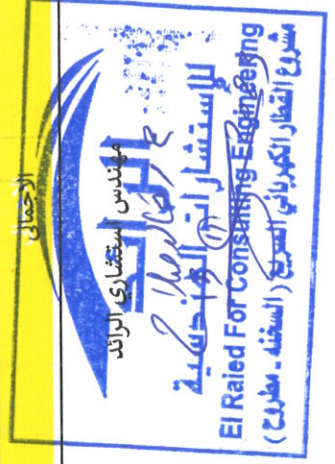 الاجمالى
مهندس استشاري الرائد
الرائد
للإستشارات الهندسية
El Raied For Consulting Engineering
مشروع القطار الكهربائي السريع ( السخنه - مطروح )